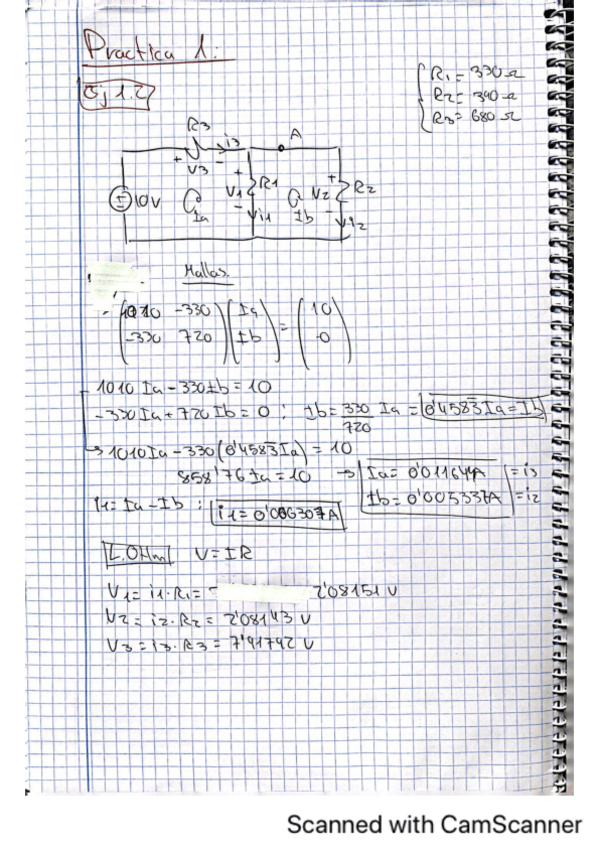 Practica 1:
Ej 1.2
R1 = 330 Ω
R2 = 390 Ω
R3 = 680 Ω
R3 i3 A
+ V3 -
10V Ia + V1 - R1 i1 Ib + V2 - R2 i2
Mallas
(1010 -330) (Ia) = (10)
(-330 720) (Ib) (0)
1010 Ia - 330 Ib = 10
-330 Ia + 720 Ib = 0 ; Ib = 330/720 Ia = 0'4583 Ia = Ib
→ 1010 Ia - 330 (0'4583 Ia) = 10
858'76 Ia = 10 → Ia = 0'011644A = i3
Ib = 0'005337A = i2
i1 = Ia - Ib : i1 = 0'006307A
L.Ohm V = IR
V1 = i1·R1 = 2'08151 V
V2 = i2·R2 = 2'08143 V
V3 = i3·R3 = 7'91792 V
Scanned with CamScanner